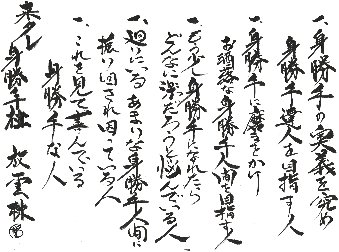 一、身勝手の奥義を究め
身勝手達人を目指す人
一、身勝手に磨きをかけ
お洒落な身勝手人間を目指す人
一、もう少し身勝手になれたら
どんなに楽だろうと悩んでいる人
一、廻りにいるあまいな身勝手人間に
振り回され困っている人
一、これを見て喜んでいる
身勝手な人
来タレ 身勝手社